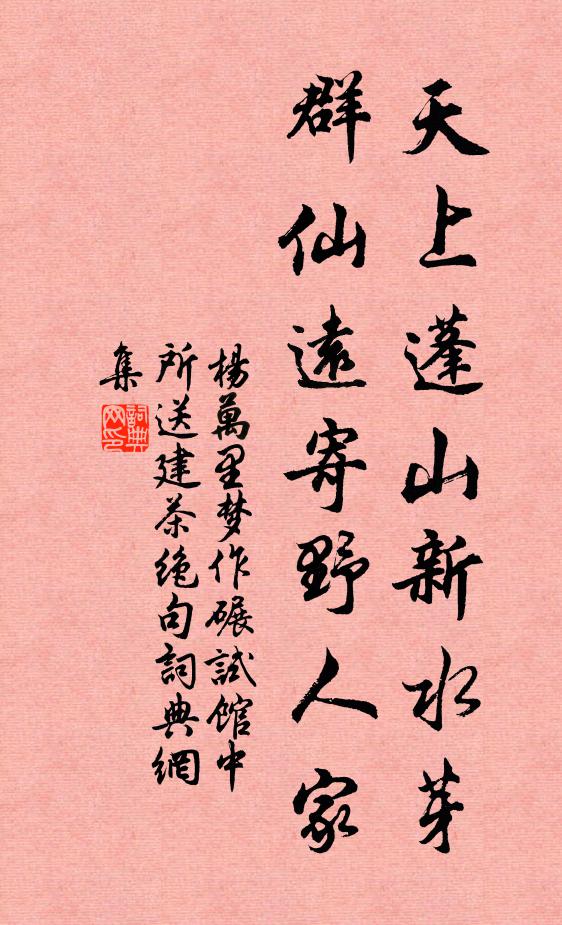 天上蓬山新水芽
群仙遠寄野人家
楊萬里梦作碾試館中
所送建茶绝句詞典網
集
詞典網印